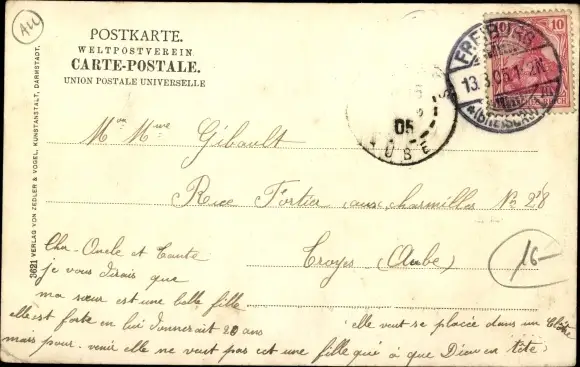 All
POSTKARTE.
WELTPOSTVEREIN
CARTE-POSTALE.
UNION POSTALE UNIVERSELLE
3621 VERLAG VON ZEDLER & VOGEL, KUNSTANSTALT, DARMSTADT.
10
FREIBURG
13. 05.1
(BREISGAU)
05
AUBE
Mr Mme Gibault
Rue Fortier aux charmilles No 28
Troyes (Aube)
16-
Cher Oncle et Tante
je vous dirais que
ma sœur est une belle fille
elle est forte on lui donnerait 20 ans
mais pour venir elle ne veut pas c'est une fille qui a que Dieu en tête
elle veut se placée dans un Cloître